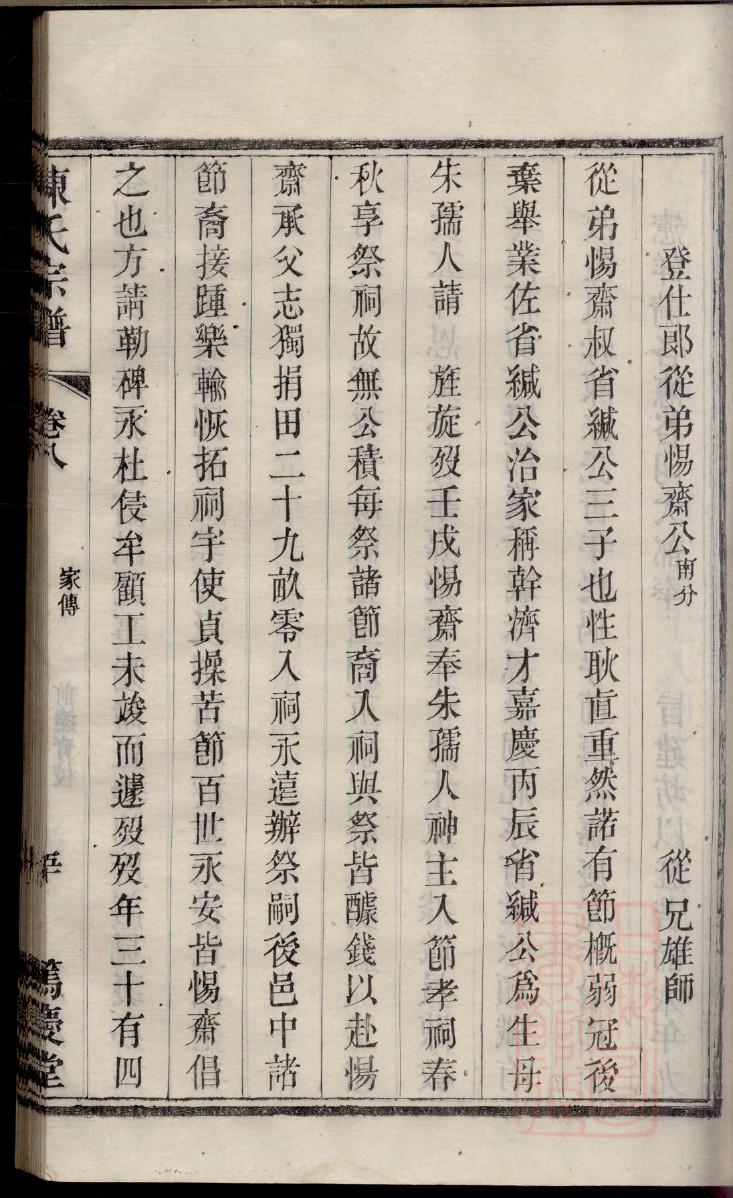 登仕郎從弟惕齋公南分　從兄雄師
從弟惕齋叔省緘公三子也性耿直重然諾有節槪弱冠後
棄舉業佐省緘公治家稱幹濟才嘉慶丙辰省緘公爲生母
朱孺人請　旌旋歿壬戌惕齋奉朱孺人神主入節孝祠春
秋享祭祠故無公積每祭諸節裔入祠與祭皆醵錢以赴惕
齋承父志獨捐田二十九畝零入祠永遠辦祭嗣後邑中諸
節裔接踵樂輸恢拓祠宇使貞操苦節百世永安皆惕齋倡
之也方請勒碑永杜侵牟顧工未竣而遽歿歿年三十有四
陳氏宗譜　卷八　家傳　篤慶堂